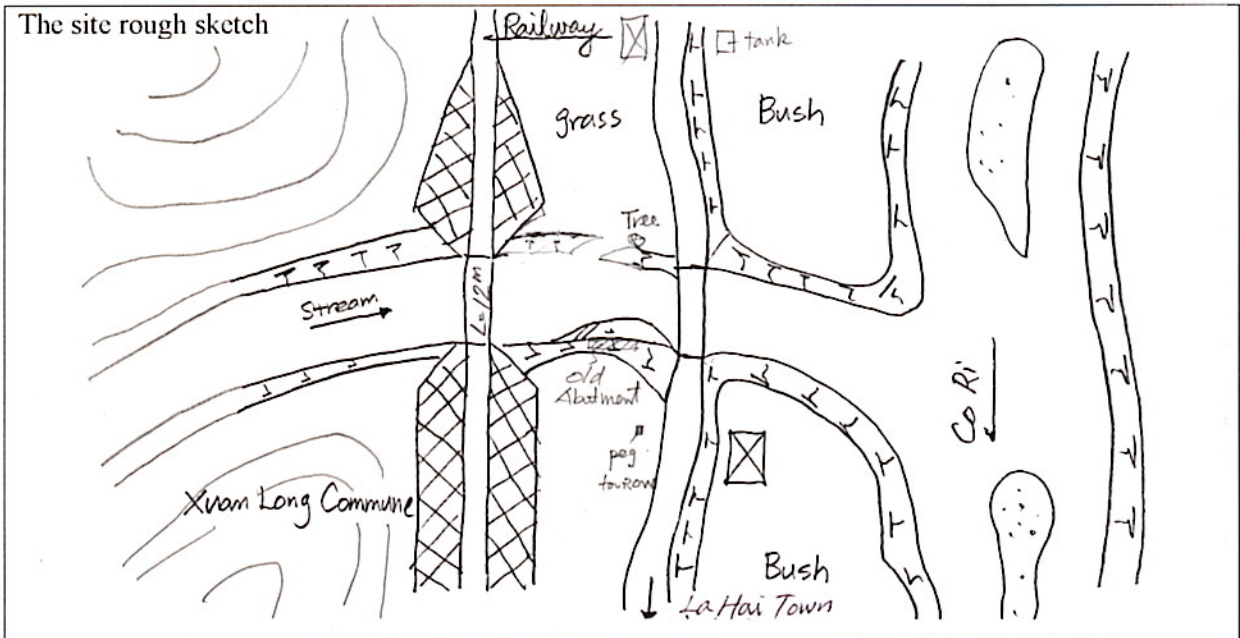 The site rough sketch
Railway
tank
grass
Bush
Tree
Stream
L=12m
old
Abutment
Co Ri
peg
Xuan Long Commune
Bush
La Hai Town